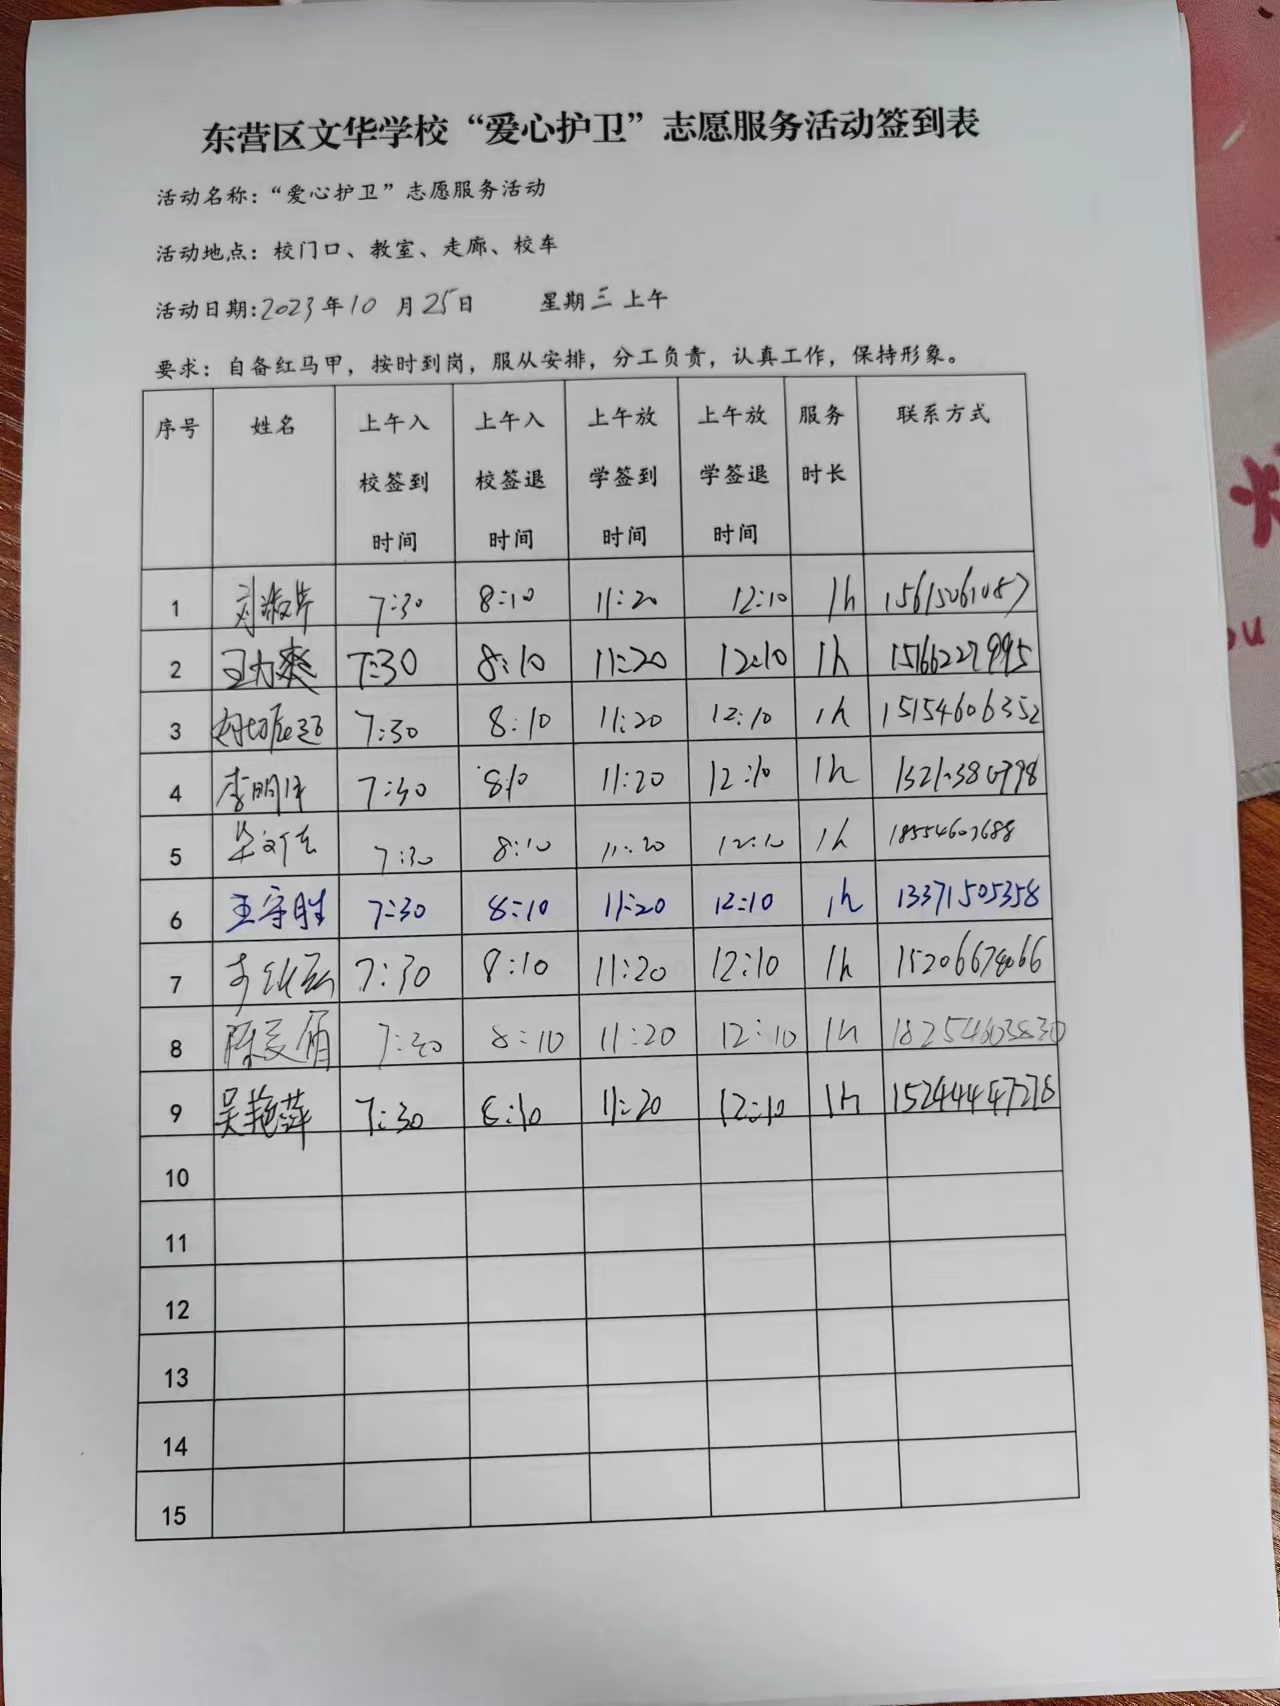 东营区文华学校“爱心护卫”志愿服务活动签到表
活动名称：“爱心护卫”志愿服务活动
活动地点：校门口、教室、走廊、校车
活动日期:2023年10月25日 星期三上午
要求：自备红马甲，按时到岗，服从安排，分工负责，认真工作，保持形象。
序号 姓名 上午入校签到时间 上午入校签退时间 上午放学签到时间 上午放学签退时间 服务时长 联系方式
1 7:30 8:10 11:20 12:10 1h 15615061087
2 王力爽 7:30 8:10 11:20 12:10 1h 15166227995
3 7:30 8:10 11:20 12:10 1h 15154606352
4 李明 7:30 8:10 11:20 12:10 1h
5 7:30 8:10 11:20 12:10 1h 18554607688
6 王守胜 7:30 8:10 11:20 12:10 1h 13371505358
7 7:30 8:10 11:20 12:10 1h
8 7:30 8:10 11:20 12:10 1h 18254603830
9 吴艳萍 7:30 8:10 11:20 12:10 1h 15244447278
10
11
12
13
14
15